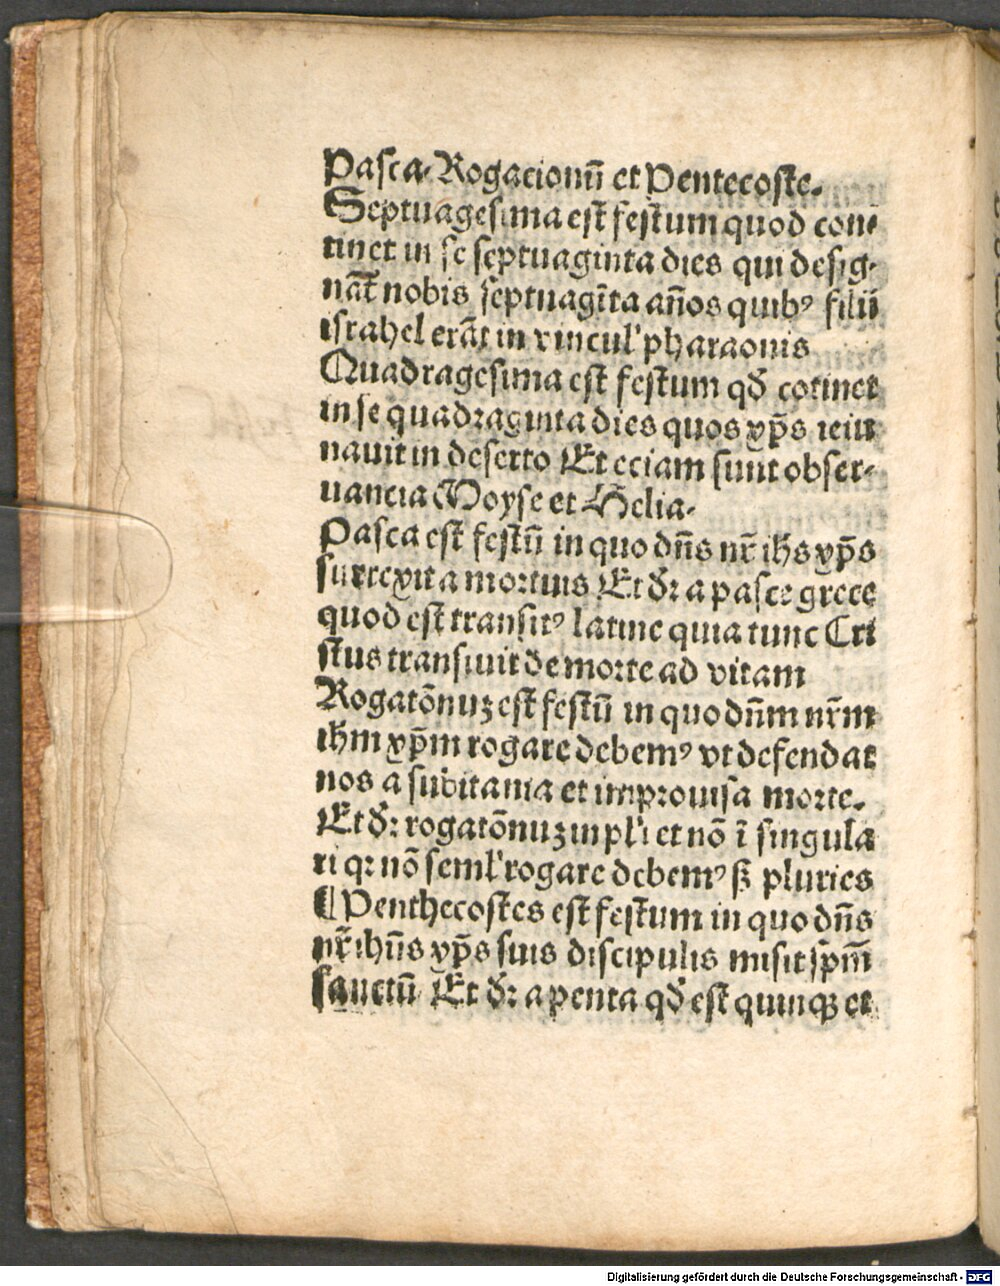 Pasca. Rogacionū et Pentecoste.
Septuagesima est festum quod con-
tinet in se septuaginta dies qui desig-
nāt nobis septuagīta años quibꝰ filii
israhel erāt in vincul' pharaonis
Quadragesima est festum qđ cotinet
in se quadraginta dies quos xp̄s ieiu
nauit in deserto Et eciam sunt obser-
uancia Moyse et Helia.
Pasca est festū in quo dñs nr̄ ihs xp̄s
surrexit a mortuis Et dr̄ a pasce grece
quod est transitꝰ latine quia tunc Cri
stus transiuit de morte ad vitam
Rogatōnuꝫ est festū in quo dñm nr̄m
ihm xp̄m rogare debemꝰ vt defendat
nos a subitania et improuisa morte.
Et dr̄ rogatōnuꝫ in pl'i et nō ī singula
ri qꝛ nō seml' rogare debemꝰ ß pluries
¶ Penthecostes est festum in quo dñs
nr̄ ihūs xp̄s suis discipulis misit sp̄m̄
sanctū Et dr̄ a penta qđ est quinqꝫ et
Digitalisierung gefördert durch die Deutsche Forschungsgemeinschaft - DFG